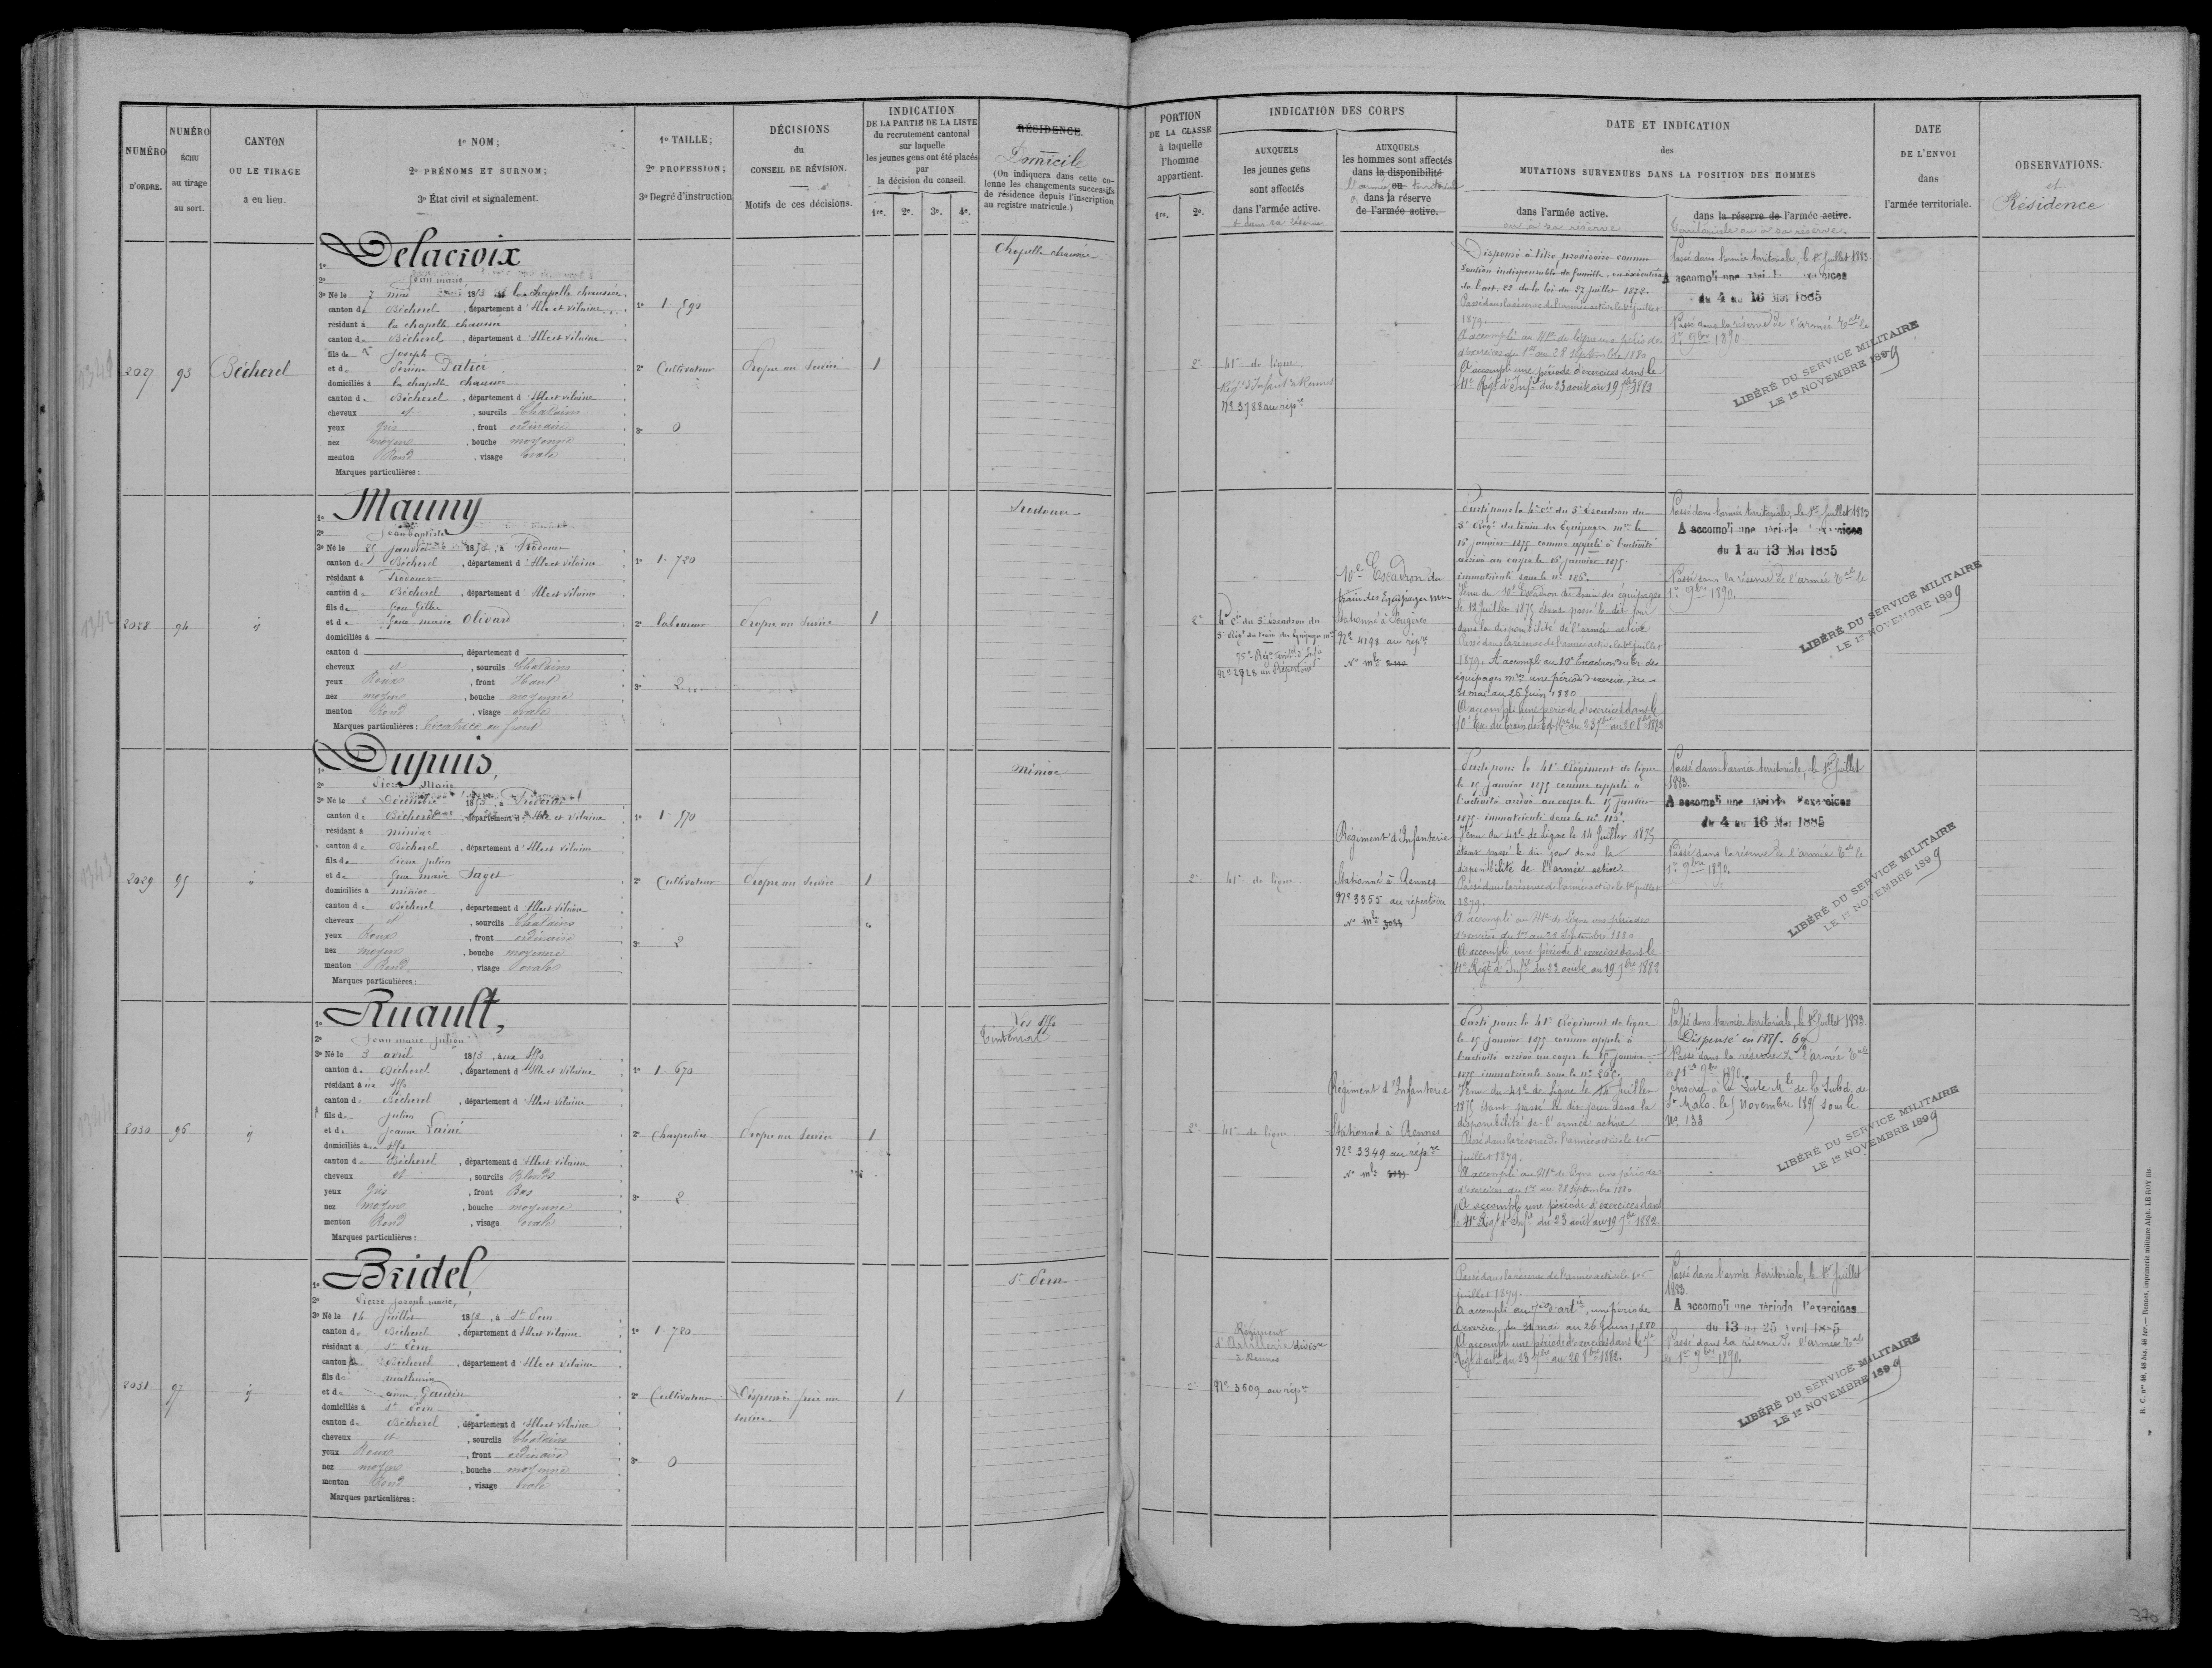 NUMÉRO D'ORDRE.
NUMÉRO ÉCHU au tirage au sort.
CANTON OU LE TIRAGE a eu lieu.
1º NOM;
2º PRÉNOMS ET SURNOM;
3º État civil et signalement.
1º TAILLE;
2º PROFESSION;
3º Degré d'instruction
DÉCISIONS du CONSEIL DE RÉVISION.
Motifs de ces décisions.
INDICATION
DE LA PARTIE DE LA LISTE
du recrutement cantonal
sur laquelle
les jeunes gens ont été placés
par
la décision du conseil.
1re. 2e. 3e. 4e.
RÉSIDENCE.
Domicile
(On indiquera dans cette colonne les changements successifs
de résidence depuis l'inscription
au registre matricule.)
2027
93
Bécherel
1º Delacroix
2º Jean marie
3º Né le 7 mai 1853 à la chapelle chaussée
canton de Bécherel, département d'Ille et Vilaine
résidant à la chapelle chaussée
canton de Bécherel, département d'Ille et Vilaine
fils de Joseph
et de
domiciliés à la chapelle chaussée
canton de Bécherel, département d'Ille et Vilaine
cheveux et, sourcils Chatains
yeux gris, front ordinaire
nez moyen, bouche moyenne
menton Rond, visage ovale
Marques particulières:
1º 1.590
2º Cultivateur
3º 0
Propre au Service
1
Chapelle chaussée
2028
94
id
1º Mauny
2º Jean baptiste
3º Né le 25 janvier 1853, à
canton de Bécherel, département d'Ille et Vilaine
résidant à
canton de Bécherel, département d'Ille et Vilaine
fils de
et de Jeanne marie
domiciliés à
canton d, département d
cheveux et, sourcils Chatains
yeux Roux, front Haut
nez moyen, bouche moyenne
menton Rond, visage ovale
Marques particulières: Cicatrice au front
1º 1.720
2º laboureur
3º 2
Propre au Service
1
2029
95
1º Dupuis,
2º Pierre Marie
3º Né le 2 Décembre 1853, à
canton de Bécherel, département d'Ille et Vilaine
résidant à miniac
canton de Bécherel, département d'Ille et Vilaine
fils de Pierre Julien
et de Jeanne marie Saget
domiciliés à miniac
canton de Bécherel, département d'Ille et Vilaine
cheveux et, sourcils Chatains
yeux Roux, front ordinaire
nez moyen, bouche moyenne
menton Rond, visage ovale
Marques particulières:
1º 1.570
2º Cultivateur
3º 2
Propre au Service
1
miniac
2030
96
id
1º Ruault,
2º Jean marie Julien
3º Né le 3 avril 1853, aux Iffs
canton de Bécherel, département d'Ille et Vilaine
résidant aux Iffs
canton de Bécherel, département d'Ille et Vilaine
fils de Julien
et de Jeanne Lainé
domiciliés aux Iffs
canton de Bécherel, département d'Ille et Vilaine
cheveux et, sourcils Blonds
yeux gris, front Bas
nez moyen, bouche moyenne
menton Rond, visage ovale
Marques particulières:
1º 1.670
2º Charpentier
3º 2
Propre au Service
1
Les Iffs
Tinténiac
2031
97
id
1º Bridel,
2º Pierre Joseph marie,
3º Né le 14 juillet 1853, à St Pern
canton de Bécherel, département d'Ille et Vilaine
résidant à St Pern
canton de Bécherel, département d'Ille et Vilaine
fils de mathurin
et de Gaudin
domiciliés à St Pern
canton de Bécherel, département d'Ille et Vilaine
cheveux et, sourcils Chatains
yeux Roux, front ordinaire
nez moyen, bouche moyenne
menton Rond, visage ovale
Marques particulières:
1º 1.780
2º Cultivateur
3º 0
Dispensé frère au
service.
1
St Pern
PORTION
DE LA CLASSE
à laquelle
l'homme
appartient.
1re. 2e.
INDICATION DES CORPS
AUXQUELS
les jeunes gens
sont affectés
dans l'armée active.
et dans sa réserve
AUXQUELS
les hommes sont affectés
dans la disponibilité
ou l'armée territoriale
dans la réserve
de l'armée active.
DATE ET INDICATION
des
MUTATIONS SURVENUES DANS LA POSITION DES HOMMES
dans l'armée active.
ou à sa réserve
dans la réserve de l'armée active.
territoriale ou à sa réserve.
DATE
DE L'ENVOI
dans
l'armée territoriale.
OBSERVATIONS.
et
Résidence
2e
41e de ligne
Régt d'Infant. à Rennes
Nº 3788 au répre
Dispensé à titre provisoire comme
soutien indispensable de famille, en exécution
de l'art. 22 de la loi du 27 juillet 1872.
Passé dans la réserve de l'armée active le 1er juillet
1879.
A accompli au 41e de ligne une période
d'exercices du 1er au 28 septembre 1880
A accompli une période d'exercices dans le
41e Régt d'Infie du 23 août au 19 7bre 1882
Passé dans l'armée territoriale, le 1er Juillet 1883
A accompli une période d'exercices
du 4 au 16 Mai 1885
Passé dans la réserve de l'armée Tale le
1er 9bre 1890.
LIBÉRÉ DU SERVICE MILITAIRE
LE 1er NOVEMBRE 1899
2e
4e Cie du 5e Escadron du
5e Régt du train des Equipages mres
35e Régt territ. d'Infie
Nº 2928 au Répertoire
10e Escadron du
train des Equipages mres
Stationné à Fougères
Nº 4198 au répre
Nº mle
Parti pour la 4e Cie du 5e Escadron du
5e Régt du train des Equipages mres le
15 janvier 1875 comme appelé à l'activité
arrivé au corps le 15 janvier 1875
immatriculé sous le nº 186.
Venu du 10e Escadron du train des équipages
le 12 Juillet 1875 étant passé le dit jour
dans la disponibilité de l'armée active
Passé dans la réserve de l'armée active le 1er juillet
1879. A accompli au 10e Escadron du tr. des
équipages mres une période d'exercices, du
31 mai au 26 juin 1880
A accompli une période d'exercices dans le
10e Ex. du train des Eq. mres du 23 7bre au 20 8bre 1882
Passé dans l'armée territoriale, le 1er Juillet 1883
A accompli une période d'exercices
du 1 au 13 Mai 1885
Passé dans la réserve de l'armée Tale le
1er 9bre 1890.
LIBÉRÉ DU SERVICE MILITAIRE
LE 1er NOVEMBRE 1899
2e
41e de ligne
Régiment d'Infanterie
Stationné à Rennes
Nº 3355 au répertoire
Nº mle
Parti pour le 41e Régiment de ligne
le 15 janvier 1875 comme appelé à
l'activité arrivé au corps le 15 janvier
1875 immatriculé sous le nº 113.
Venu du 41e de ligne le 14 Juillet 1875
étant passé le dit jour dans la
disponibilité de l'armée active
Passé dans la réserve de l'armée active le 1er juillet
1879.
A accompli au 41e de Ligne une période
d'exercices du 1er au 28 Septembre 1880
A accompli une période d'exercices dans le
41e Régt d'Infie du 23 août au 19 7bre 1882
Passé dans l'armée territoriale, le 1er Juillet
1883.
A accompli une période d'exercices
du 4 au 16 Mai 1885
Passé dans la réserve de l'armée Tale le
1er 9bre 1890.
LIBÉRÉ DU SERVICE MILITAIRE
LE 1er NOVEMBRE 1899
2e
41e de ligne
Régiment d'Infanterie
Stationné à Rennes
Nº 3349 au répre
Nº mle
Parti pour le 41e Régiment de ligne
le 15 janvier 1875 comme appelé à
l'activité arrivé au corps le 15 janvier
1875 immatriculé sous le nº
Venu du 41e de Ligne le 14 Juillet
1875 étant passé le dit jour dans la
disponibilité de l'armée active
Passé dans la réserve de l'armée active le 1er
juillet 1879.
A accompli au 41e de Ligne une période
d'exercices du 1er au 28 Septembre 1880
A accompli une période d'exercices dans
le 41e Régt d'Infie du 23 août au 19 7bre 1882
Passé dans l'armée territoriale, le 1er Juillet 1883
Dispensé en 1885.
Passé dans la réserve de l'armée Tale
le 1er 9bre 1890
Inscrit à la Liste Mle de la Subd. de
St Malo. le 5 Novembre 1895 sous le
No 133
LIBÉRÉ DU SERVICE MILITAIRE
LE 1er NOVEMBRE 1899
2e
Régiment
d'Artillerie divisre
à Rennes
Nº 3609 au répre
Passé dans la réserve de l'armée active le 1er
juillet 1879.
A accompli au 7e d'artie, une période
d'exercices, du 31 mai au 26 Juin 1880
A accompli une période d'exercices dans le 7e
Régt d'artie du 23 7bre au 20 8bre 1882.
Passé dans l'armée territoriale, le 1er Juillet
1883
A accompli une période d'exercices
du 13 au 25 Avril 1885
Passé dans la réserve de l'armée Tale
le 1er 9bre 1890.
LIBÉRÉ DU SERVICE MILITAIRE
LE 1er NOVEMBRE 1899
R. C. nos 48, 48 bis, 48 ter. — Rennes, imprimerie militaire Alph. LE ROY fils.
370